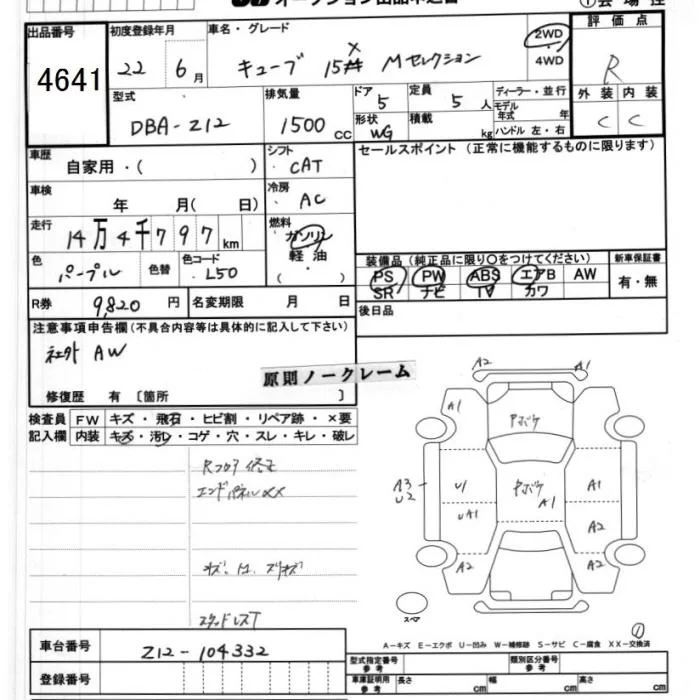 出品番号 初度登録年月 車名・グレード 2WD 4WD 評価点
4641 22年 6月 キューブ 15X Mセレクション R
型式 排気量 ドア 定員 ディーラー・並行 外装 内装
DBA-Z12 1500cc 5 5人 モデル年式 年 C C
形状 WG 積載 kg ハンドル 左・右
車歴 自家用・( ) シフト ・CAT セールスポイント(正常に機能するものに限ります)
車検 年 月( 日) 冷房 ・AC
走行 14万4千797km 燃料 ガソリン 軽油 ( ・ )
色 パープル 色替 色コード ・L50
装備品(純正品に限り○をつけてください) 新車保証書
PS PW ABS エアB AW 有・無
SR ナビ TV カワ
R券 9,820円 名変期限 月 日 後日品
注意事項申告欄(不具合内容等は具体的に記入して下さい)
社外 AW
原則ノークレーム
修復歴 有 〔箇所 〕
検査員 FW キズ・飛石・ヒビ割・リペア跡・×要
記入欄 内装 キズ・汚レ・コゲ・穴・スレ・キレ・破レ
Rフロア修正
エンドパネルXX
スタッドレスT
A2 A1
A1 Pボケ
A3 U2 U1 Pボケ A1 A1
UA1 A2
A2 A2
スペア
A-キズ E-エクボ U-凹み W-補修跡 S-サビ C-腐食 XX-交換済
車台番号 Z12-104332
型式指定番号 参考 類別区分番号 参考
登録番号 車庫証明用 参考 長さ cm 幅 cm 高さ cm